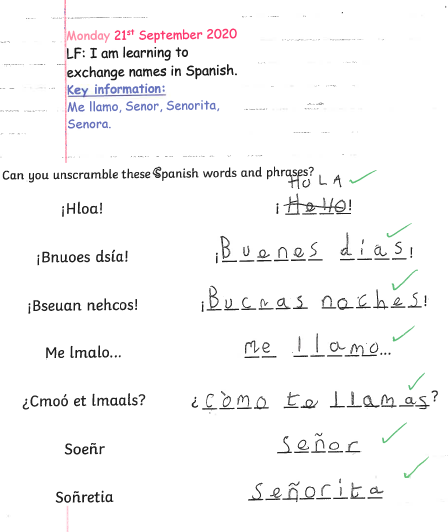 Monday 21st September 2020
LF: I am learning to
exchange names in Spanish.
Key information:
Me llamo, Senor, Senorita,
Senora.
Can you unscramble these Spanish words and phrases?
HOLA
¡Hloa! ¡Hello!
¡Bnuoes dsía! ¡Buenes días!
¡Bseuan nehcos! ¡Bucnas noches!
Me lmalo... me llamo...
¿Cmoó et lmaals? ¿còmo te llamas?
Soeñr señor
Soñretia señorita